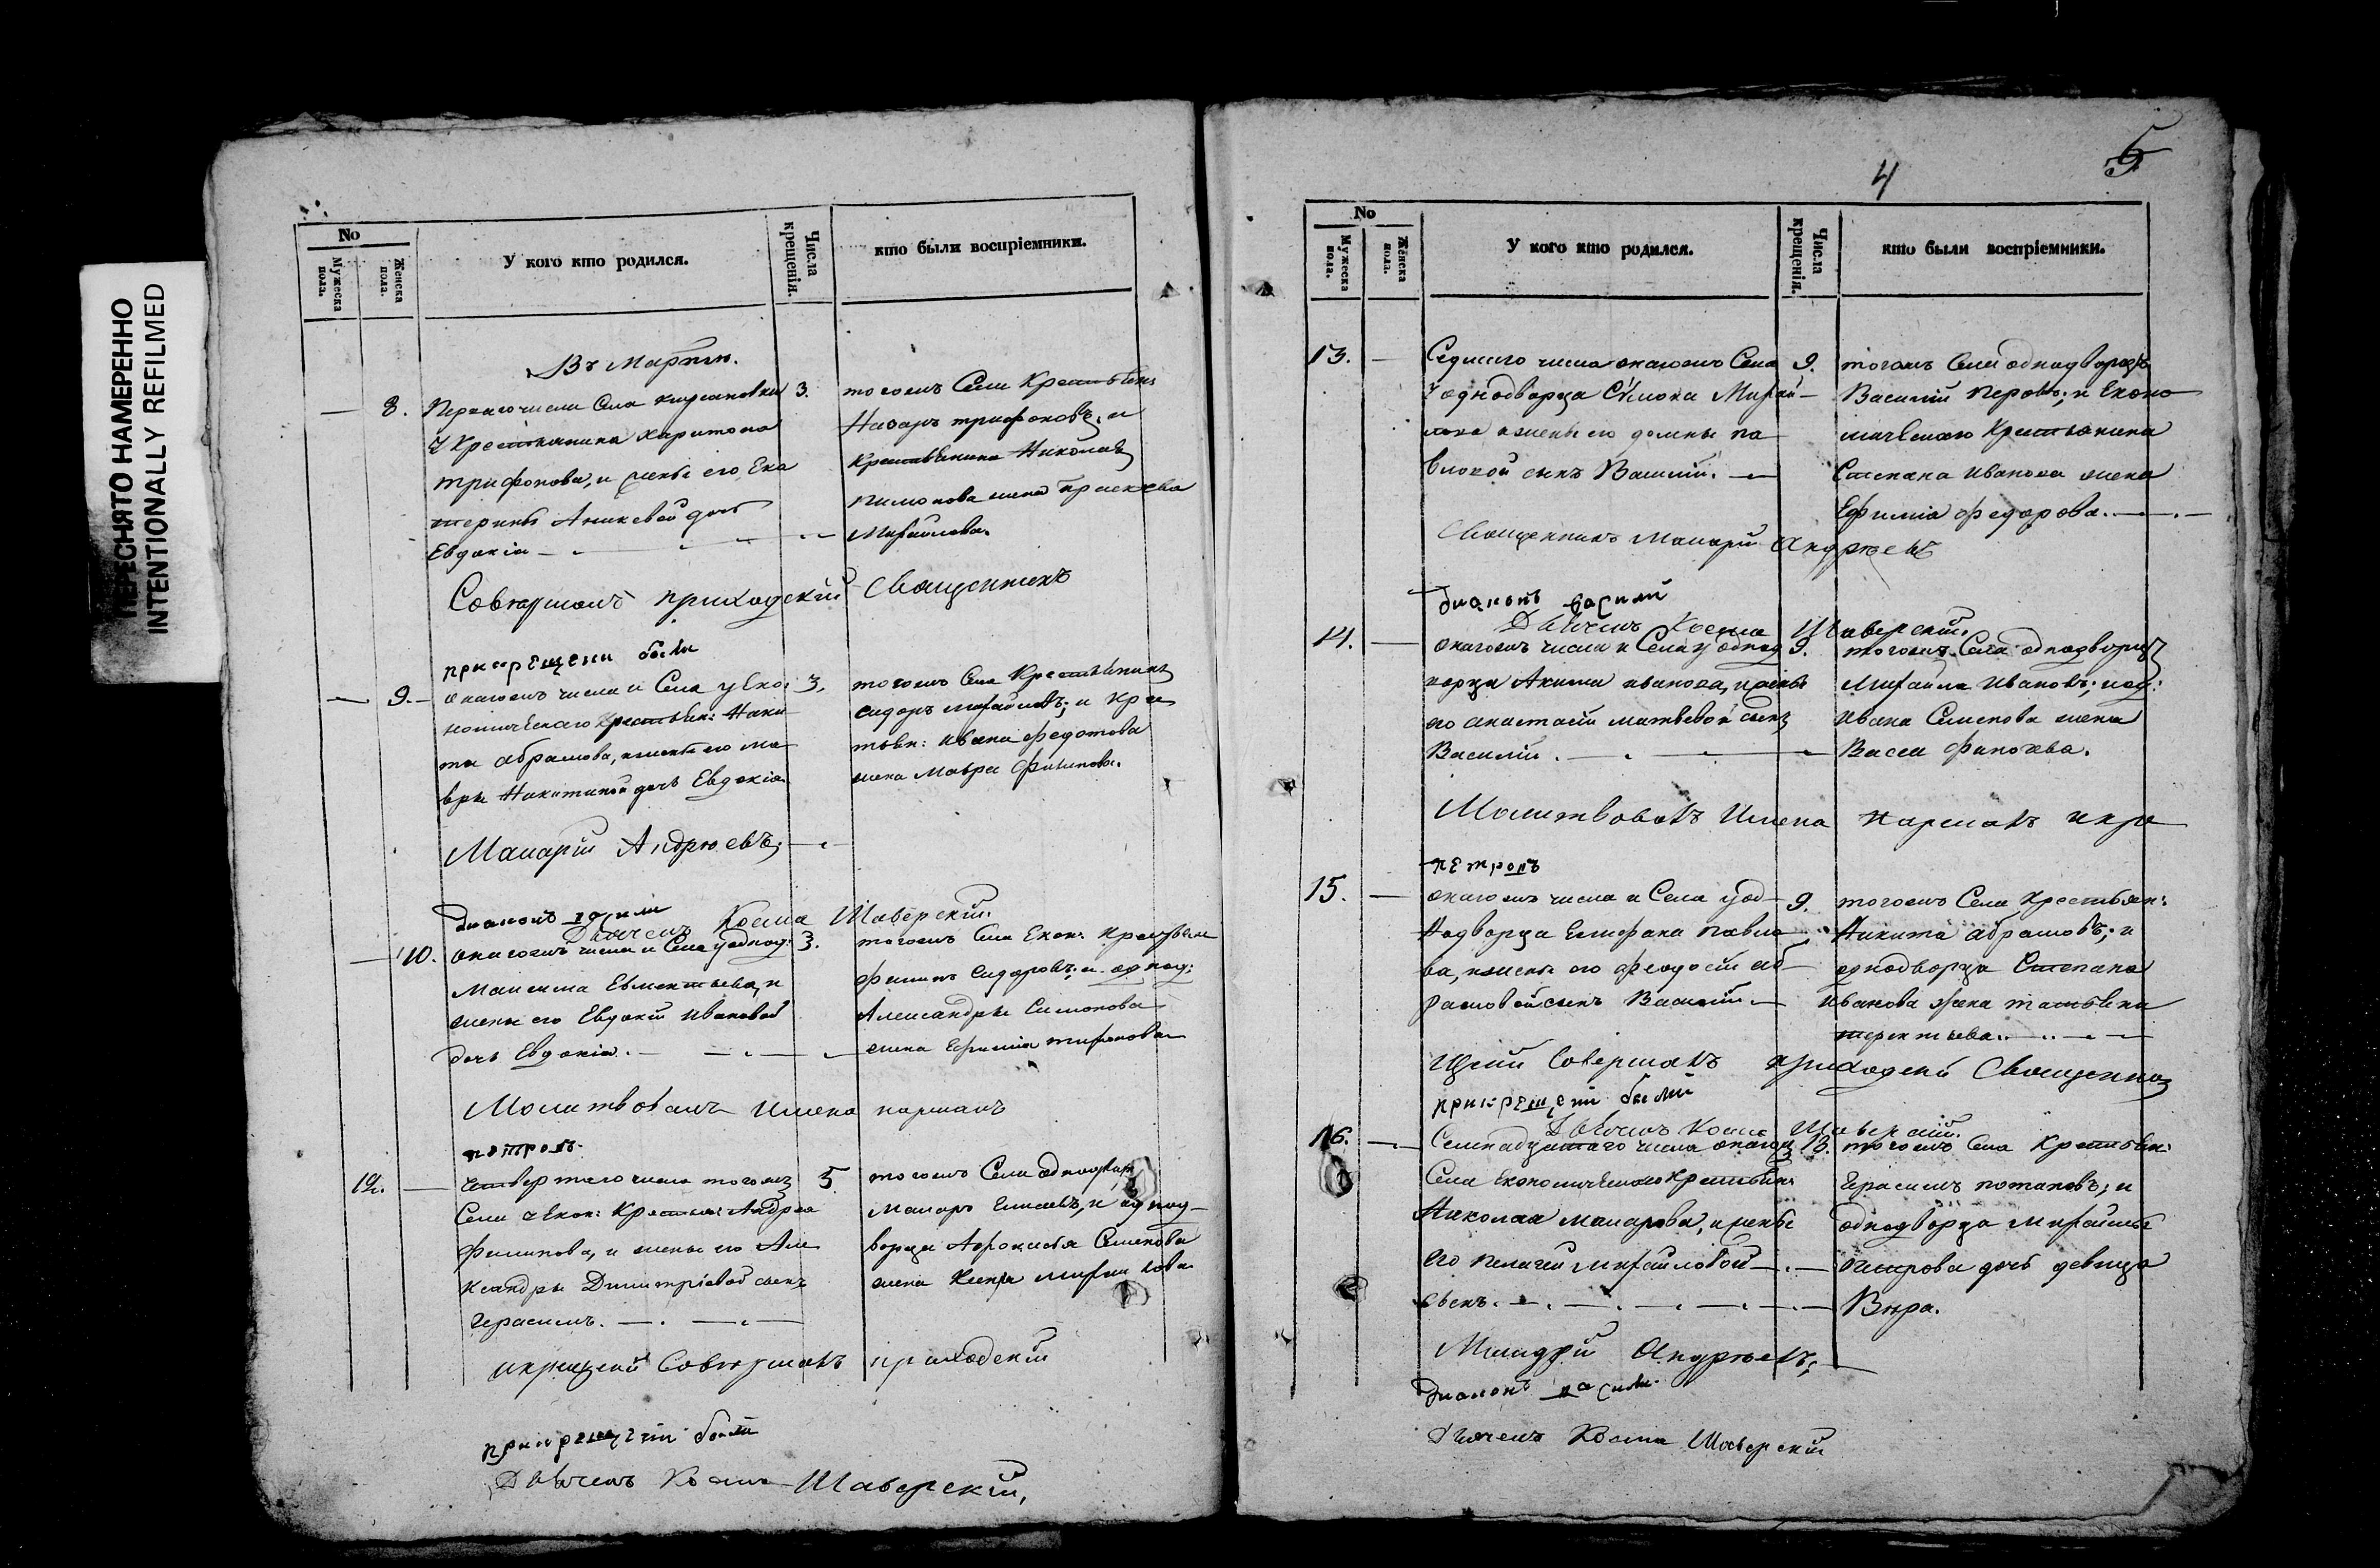 ПЕРЕСНЯТО НАМЕРЕННО
INTENTIONALLY REFILMED
No
Мужеска пола.
Женска пола.
У кого кто родился.
Числа крещенія.
кто были воспріемники.
Въ Мартѣ.
8.
Перваго числа Села
У Крестьянина Харитона
Трифонова, и жены его Ека
терины дочь
Евдокія
3.
тогожъ Села Крестьян:
Назаръ Трифоновъ, и
Крестьянина Николая
Пимонова жена Праскева
Михайлова.
Совершалъ приходскій Священникъ
при крещении были
9.
онагожъ числа и Села у Еко
номическаго Крестьян: Ники
ты Абрамова, и жены его Ма
вры Никитиной дочь Евдокія
3.
тогожъ Села Крестьянинъ
Сидоръ Михайловъ; и Кре
стьян: Ивана Федотова
жена Мавра Филипова.
Макарій Андреевъ;
диаконъ
Дьячекъ Косма Шаверскій.
10.
онагожъ числа и Села у однод:
Максима Евментьева, и
жены его Евдокіи Ивановой
дочь Евдокія.
3.
тогожъ Села Екон: Крестьян
Филипъ Сидоровъ; и однод:
Александры Симонова
жена Ефимія
Молитвовалъ Имена нарекалъ
12.
Четвертаго числа тогожъ
Села у Екон: Крестьян: Андрея
Филипова, и жены его Але
ксандры Димитріевой сынъ
Герасимъ.
5.
тогожъ Села однодворецъ
Макаръ и однод
ворца Семенова
жена Михаилова
и крещеній Совершалъ приходскій
при крещеніи были
Дьячекъ Косма Шаверскій,
4
5
No
Мужеска пола.
Женска пола.
У кого кто родился.
Числа крещенія.
кто были воспріемники.
13.
Седмаго числа онагожъ Села
У однодворца Симона Михай
лова и жены его Домны Па
вловой сынъ Василій.
9.
тогожъ Села однодворецъ
Василій и Еконо
мическаго Крестьянина
Степана Иванова жена
Ефимія Федорова.
Священникъ Макарій Андреевъ
диаконъ
Дьячекъ Косма Шаверскій.
14.
онагожъ числа и Села у однод
ворца Акима Иванова, и жены
его Анастасіи Матвевой сынъ
Василій.
9.
тогожъ Села однодворецъ
Михайла Ивановъ; и од:
Ивана Семенова жена
Васса
Молитвовалъ Имена нарекалъ и кре
15.
онагожъ числа и Села у од
нодворца Епифана Павло
ва, и жены его Феодосіи Аб
рамовой сынъ Василій
9.
тогожъ Села Крестьян:
Никита Абрамовъ; и
однодворца Степана
Иванова жена Татьяна
Терентьева.
щеніи Совершалъ приходскій Священникъ
при крещеніи были
Дьячекъ Косма Шаверскій.
16.
Семнадцатаго числа онагожъ
Села Економическаго Крестьян:
Николая Макарова, и жены
его Пелагеи Михайловой
сынъ.
18.
тогожъ Села Крестьян:
Герасимъ Потаповъ; и
однодворца Михайлы
дочь девица
Вѣра.
Макарій Андреевъ;
диаконъ
Дьячекъ Косма Шаверскій